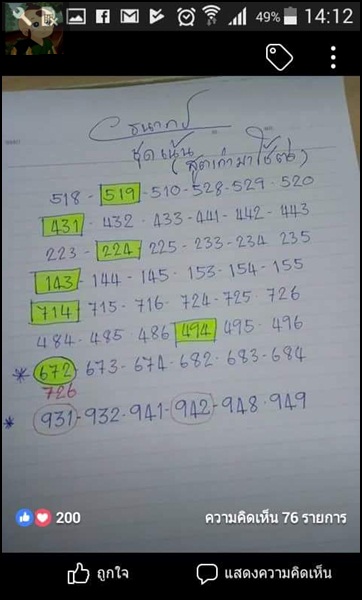 49% 14:12
ธนากร
ชุดเน้น
(สูตรเก่ามาใช้ต่อ)
518 - 519 - 510 - 528 - 529 - 520
431 - 432 · 433 - 441 - 442 - 443
223 - 224 225 - 233 - 234 235
143 - 144 - 145 · 153 · 154 - 155
714 715 - 716 · 724 - 725 · 726
484 - 485 486 494 495 - 496
* 672 673 - 674 - 682 · 683 - 684
726
* 931 - 932 - 941 - 942 - 948 · 949
200 ความคิดเห็น 76 รายการ
ถูกใจ แสดงความคิดเห็น